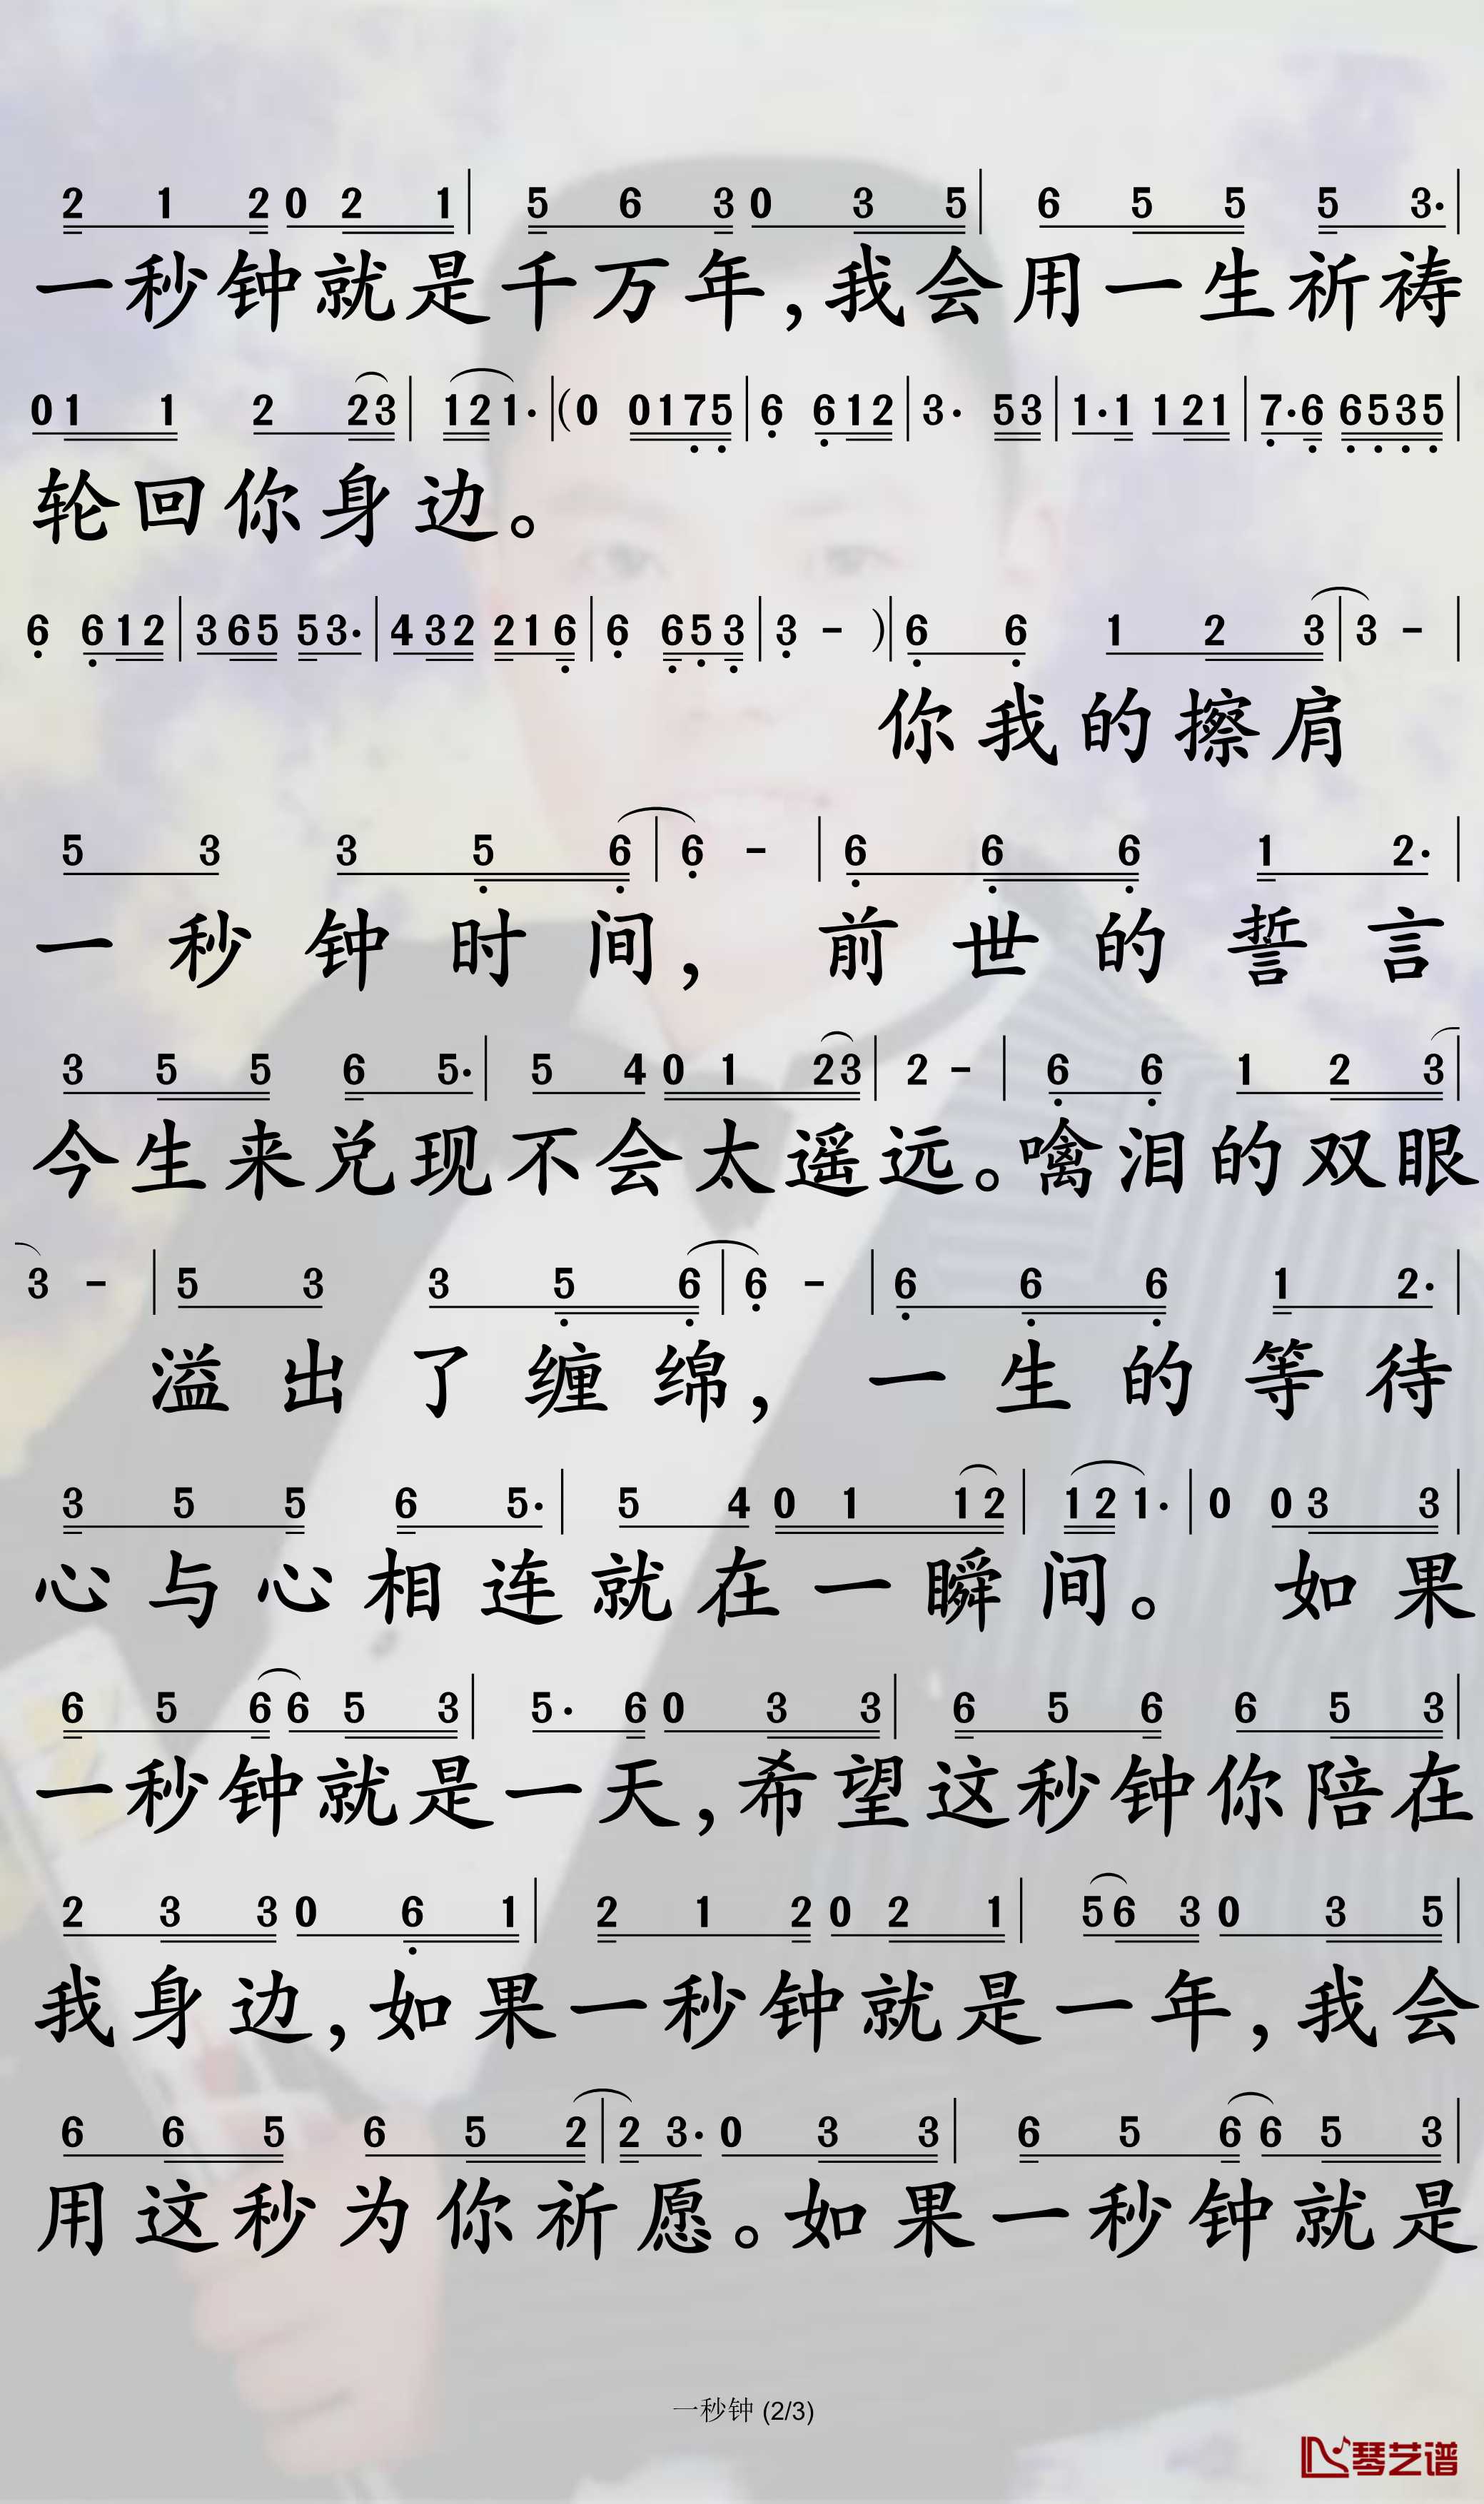 2 1 2 0 2 1 | 5 6 3 0 3 5 | 6 5 5 5 3. |
一秒钟就是千万年,我会用一生祈祷
0 1 1 2 2 3 | 1 2 1. | (0 0 1 7 5 | 6 6 1 2 | 3. 5 3 | 1. 1 1 2 1 | 7. 6 6 5 3 5 |
轮回你身边。
6 6 1 2 | 3 6 5 5 3. | 4 3 2 2 1 6 | 6 6 5 3 | 3 - ) | 6 6 1 2 3 | 3 - |
你我的擦肩
5 3 3 5 6 | 6 - | 6 6 6 1 2. |
一秒钟时间,前世的誓言
3 5 5 6 5. | 5 4 0 1 2 3 | 2 - | 6 6 1 2 3 |
今生来兑现不会太遥远。噙泪的双眼
3 - | 5 3 3 5 6 | 6 - | 6 6 6 1 2. |
溢出了缠绵,一生的等待
3 5 5 6 5. | 5 4 0 1 1 2 | 1 2 1. | 0 0 3 3 |
心与心相连就在一瞬间。如果
6 5 6 6 5 3 | 5. 6 0 3 3 | 6 5 6 6 5 3 |
一秒钟就是一天,希望这秒钟你陪在
2 3 3 0 6 1 | 2 1 2 0 2 1 | 5 6 3 0 3 5 |
我身边,如果一秒钟就是一年,我会
6 6 5 6 5 2 | 2 3. 0 3 3 | 6 5 6 6 5 3 |
用这秒为你祈愿。如果一秒钟就是
一秒钟 (2/3)
琴艺谱